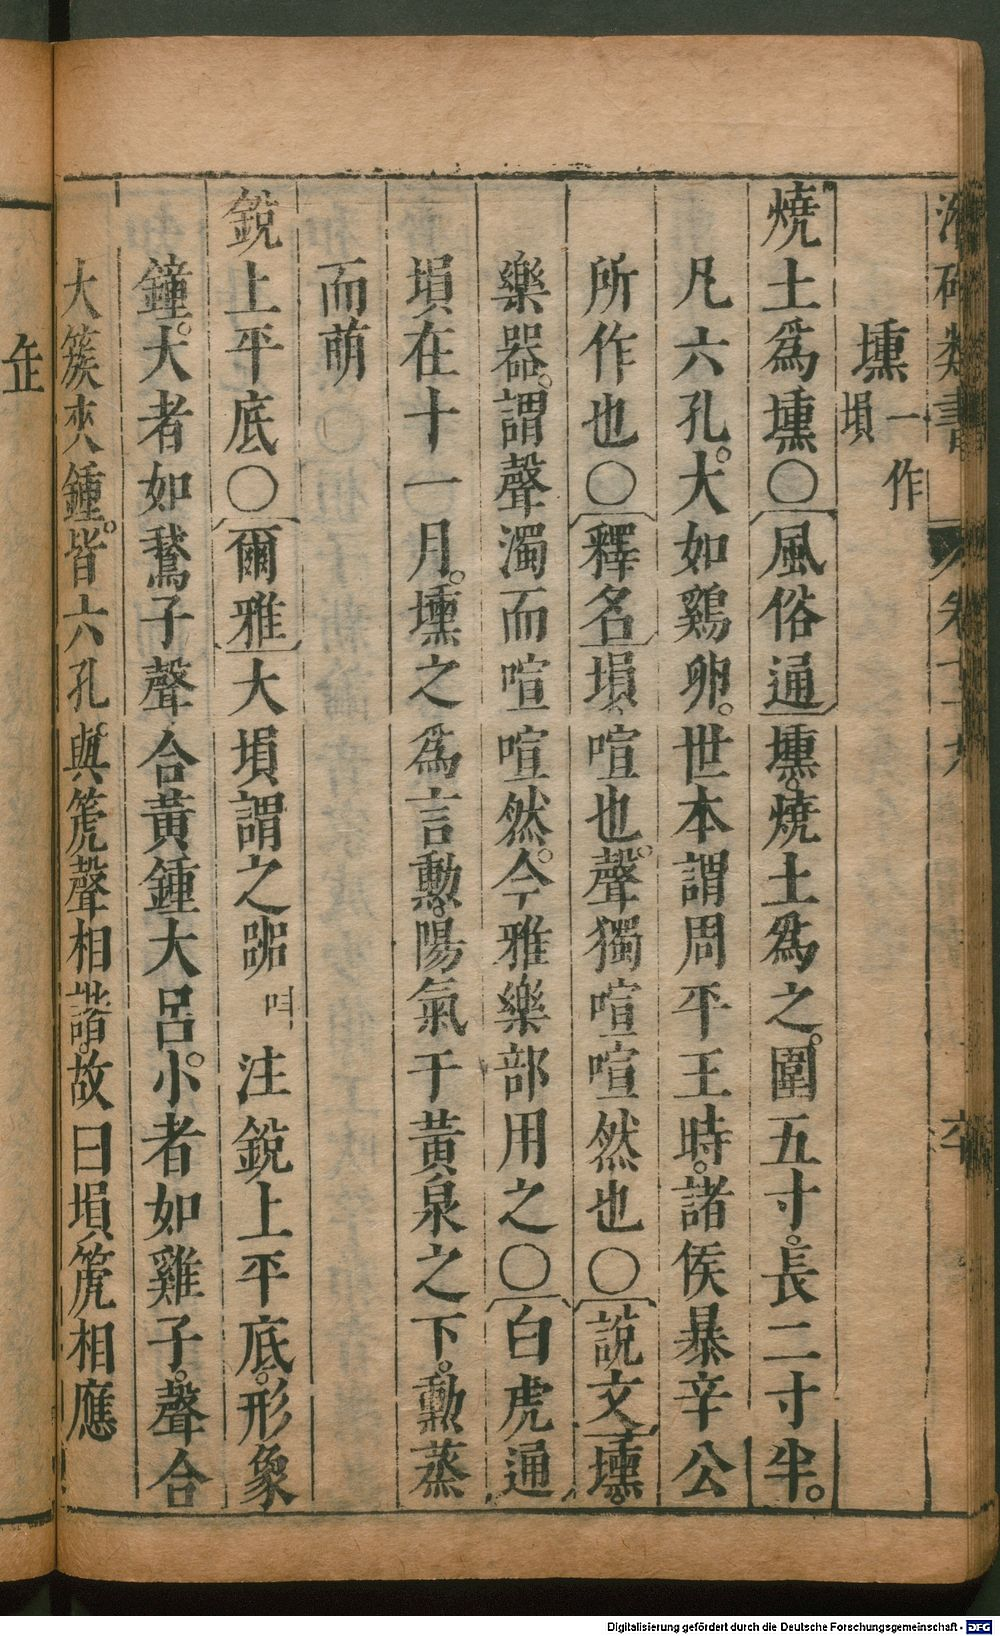 壎一作塤
燒土爲壎○風俗通壎燒土爲之。圍五寸。長二寸半。
凡六孔。大如鷄卵。世本謂周平王時。諸侯暴辛公
所作也○釋名塤喧也。聲獨喧喧然也○說文壎。
樂器。謂聲濁而喧喧然。今雅樂部用之○白虎通
塤在十一月。壎之爲言勳。陽氣于黃泉之下。勳蒸
而萌
銳上平底○爾雅大塤謂之嘂 注銳上平底。形象
鐘。大者如鵞子聲合黃鍾大呂。小者如雞子。聲合
大簇夾鍾。皆六孔。與箎聲相諧。故曰塤箎相應
缶
Digitalisierung gefördert durch die Deutsche Forschungsgemeinschaft - DFG